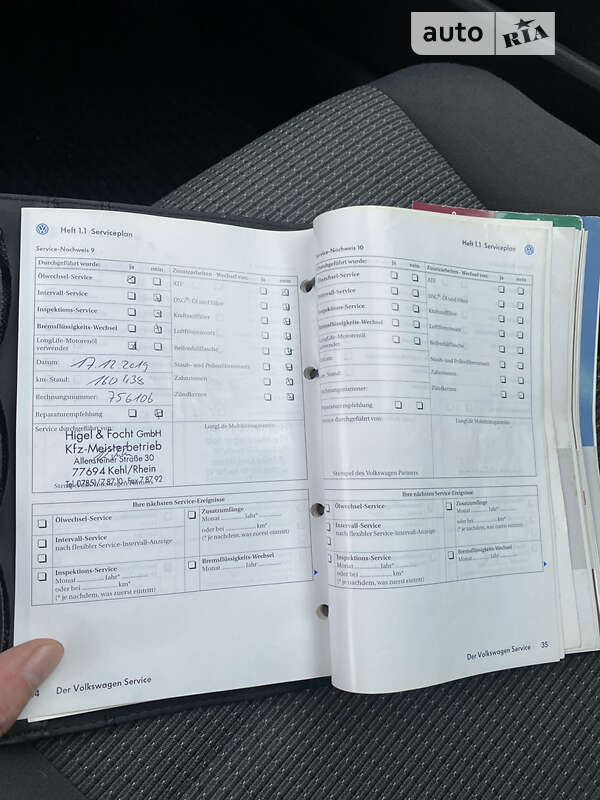 auto RIA
Heft 1.1 Serviceplan
Service-Nachweis 9
Durchgeführt wurde: ja nein
Ölwechsel-Service
Intervall-Service
Inspektions-Service
Bremsflüssigkeits-Wechsel
LongLife-Motorenöl
verwendet
Datum: 17.12.2019
km-Stand: 160 438
Rechnungsnummer: 756106
Reparaturempfehlung
Zusatzarbeiten - Wechsel von: ja nein
ATF
DSG®: Öl und Filter
Kraftstofffilter
Luftfiltereinsatz
Reifenfüllflasche
Staub- und Pollenfiltereinsatz
Zahnriemen
Zündkerzen
Service durchgeführt von:
LongLife Mobilitätsgarantie:
Higel & Focht GmbH
Kfz-Meisterbetrieb
Allensteiner Straße 30
77694 Kehl/Rhein
Tel. 07851/7 87 10 · Fax 7 87 92
Stempel des Volkswagen Partners
Ihre nächsten Service-Ereignisse
Ölwechsel-Service
Intervall-Service
nach flexibler Service-Intervall-Anzeige
Inspektions-Service
Monat Jahr*
oder bei km*
(* je nachdem, was zuerst eintritt)
Zusatzumfänge
Monat Jahr*
oder bei km*
(* je nachdem, was zuerst eintritt)
Bremsflüssigkeits-Wechsel
Monat Jahr
4 Der Volkswagen Service
Heft 1.1 Serviceplan
Service-Nachweis 10
Durchgeführt wurde: ja nein
Ölwechsel-Service
Intervall-Service
Inspektions-Service
Bremsflüssigkeits-Wechsel
LongLife-Motorenöl
verwendet
Datum:
km-Stand:
Rechnungsnummer:
Reparaturempfehlung
Zusatzarbeiten - Wechsel von: ja nein
ATF
DSG®: Öl und Filter
Kraftstofffilter
Luftfiltereinsatz
Reifenfüllflasche
Staub- und Pollenfiltereinsatz
Zahnriemen
Zündkerzen
Service durchgeführt von:
LongLife Mobilitätsgarantie:
Stempel des Volkswagen Partners
Ihre nächsten Service-Ereignisse
Ölwechsel-Service
Intervall-Service
nach flexibler Service-Intervall-Anzeige
Inspektions-Service
Monat Jahr*
oder bei km*
(* je nachdem, was zuerst eintritt)
Zusatzumfänge
Monat Jahr*
oder bei km*
(* je nachdem, was zuerst eintritt)
Bremsflüssigkeits-Wechsel
Monat Jahr
Der Volkswagen Service 35